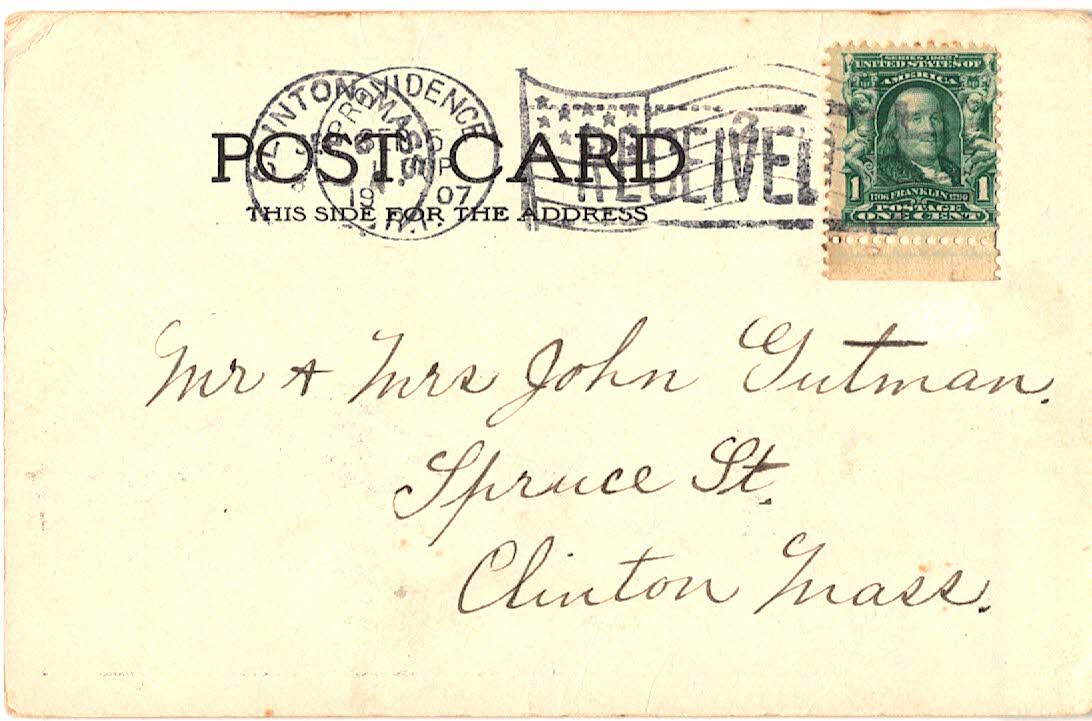 POST CARD
THIS SIDE FOR THE ADDRESS
CLINTON MASS.
PROVIDENCE
R.I.
19 07
RECEIVED
SERIES 1902
UNITED STATES OF
AMERICA
1 1706 FRANKLIN 1790 1
POSTAGE
ONE CENT
Mr & Mrs John Gutman.
Spruce St.
Clinton Mass.